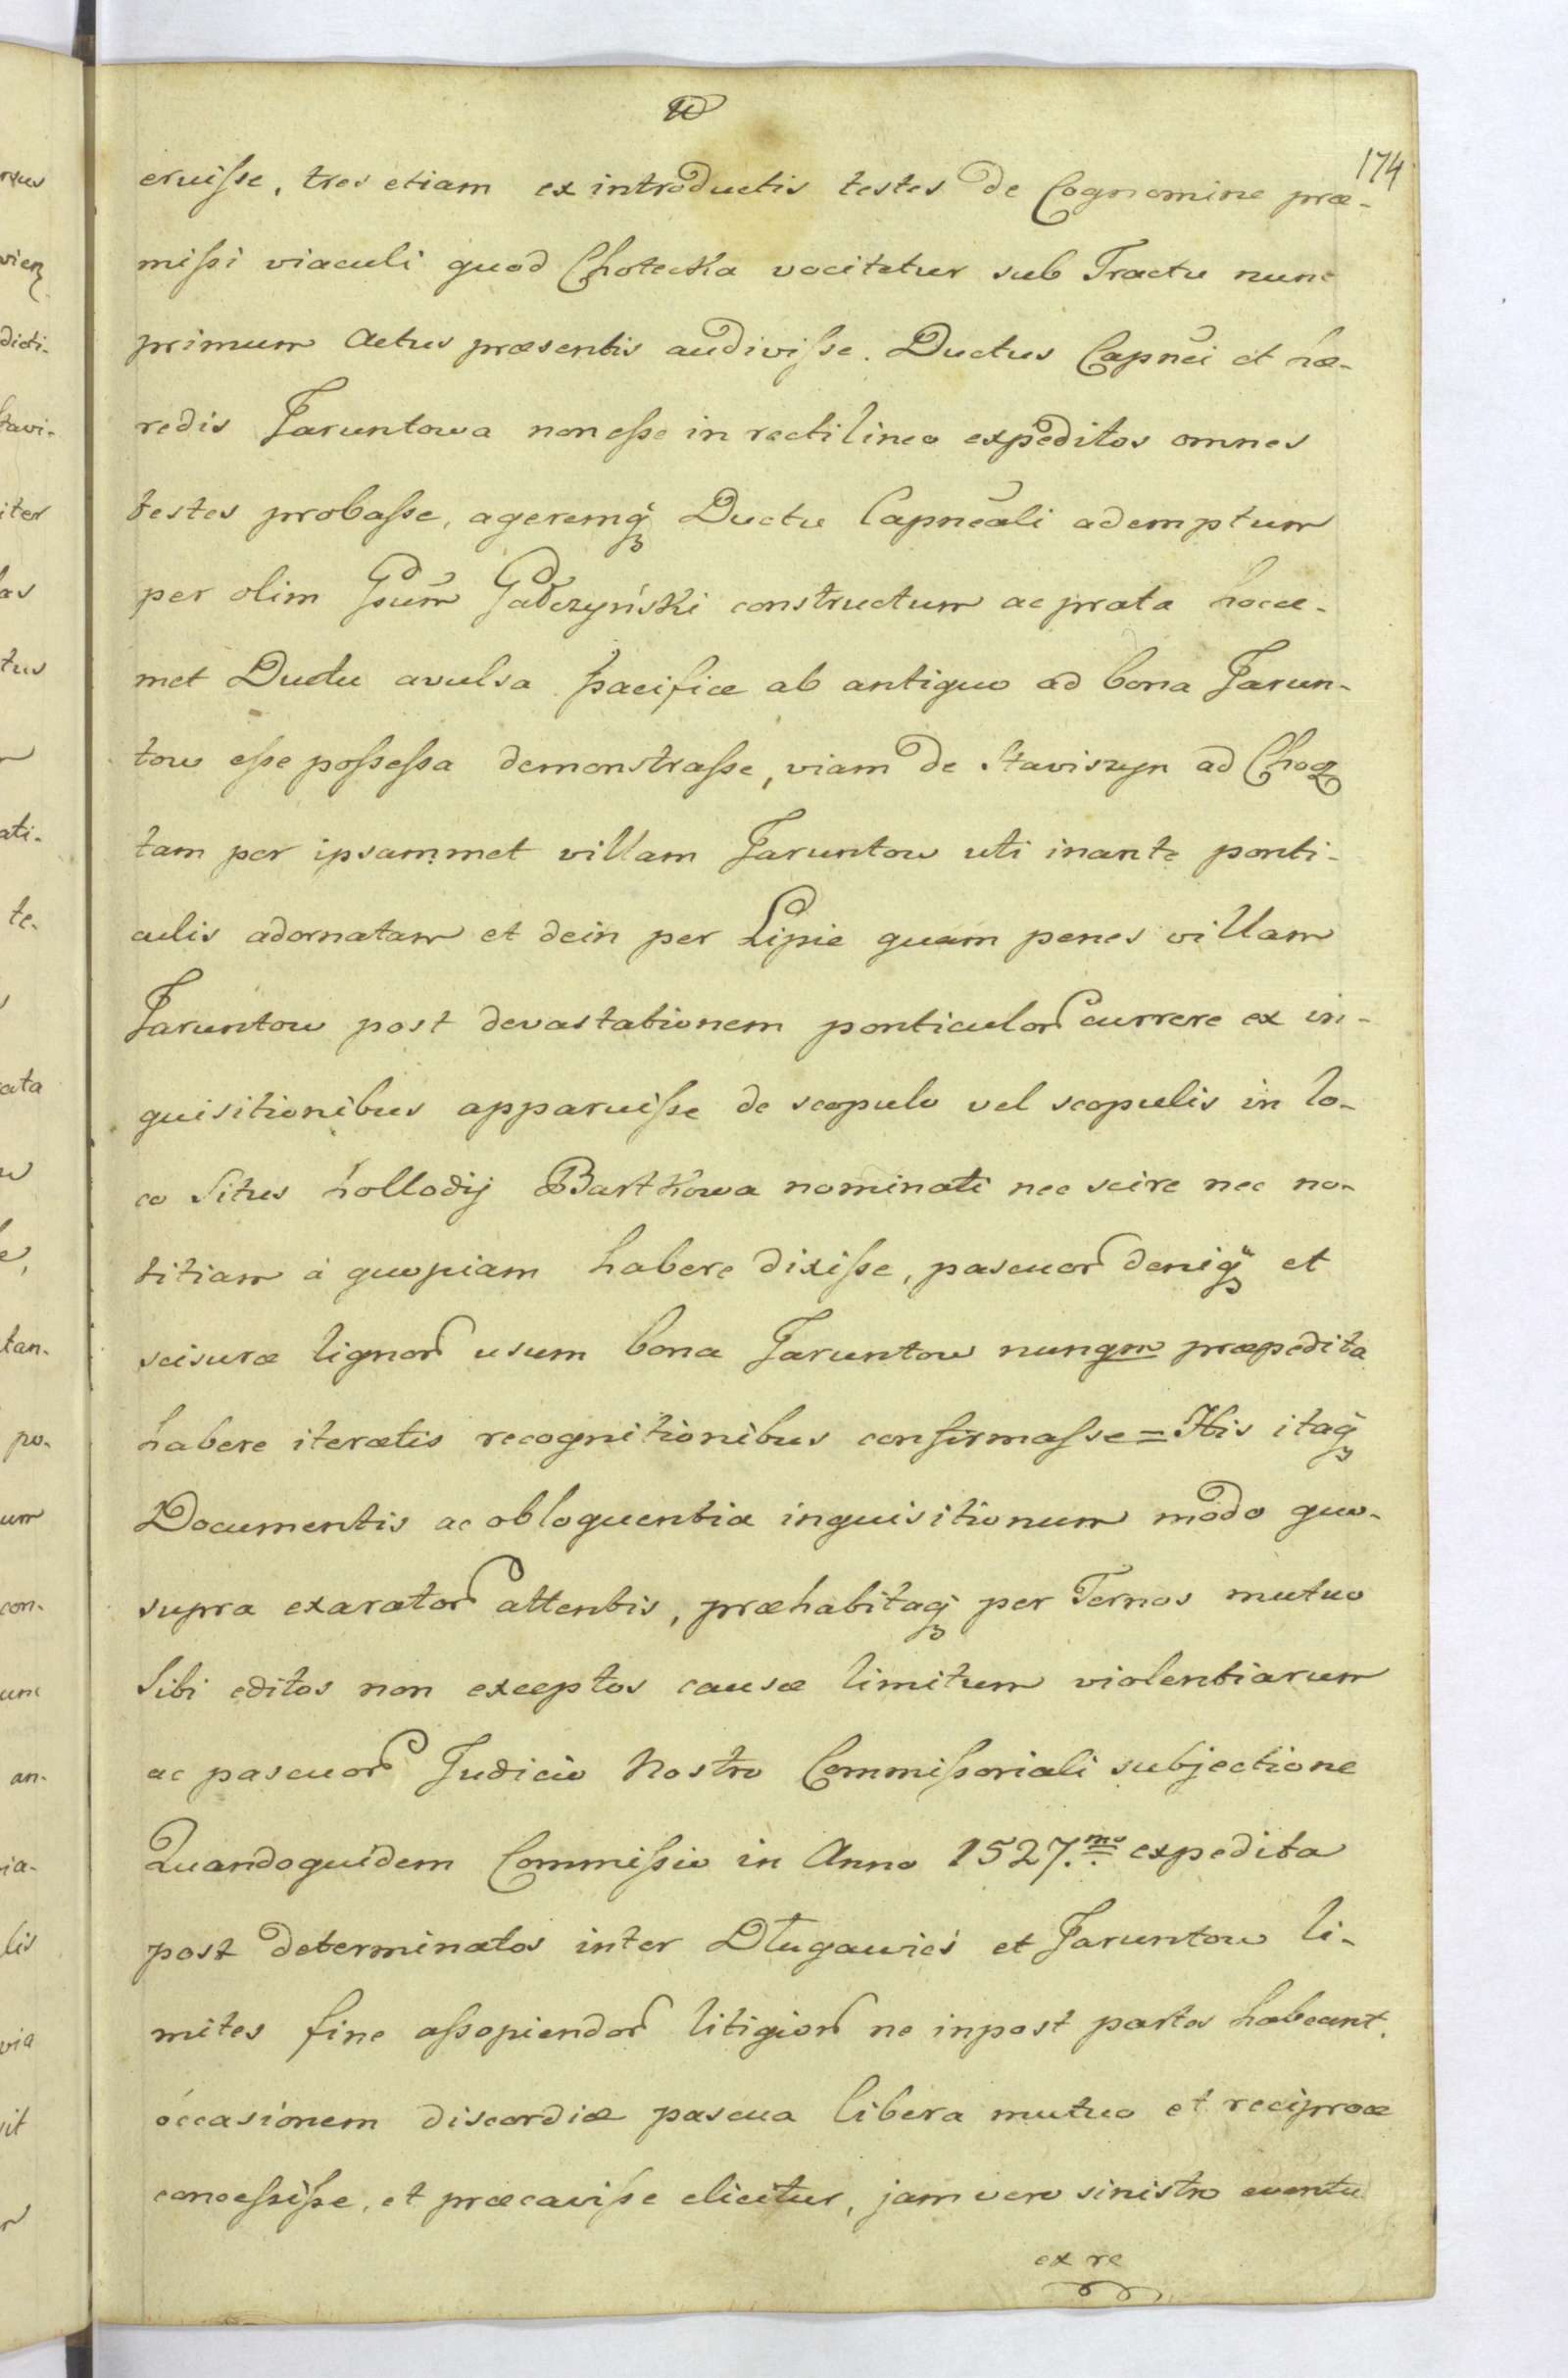 174
eruisse, tres etiam ex introductis testes de Cognomine præ-
missi viaculi quod Chotecka vocitetur sub Tractu nunc
primum Actus præsentis audivisse. Ductus Capnei et hæ-
redis Jaruntowa non esse in rectilineo expeditos omnes
testes probasse, ageremq3 Ductu Capneali ademptum
per olim Gsum Gałczyński constructum ac prata hocce-
met Ductu avulsa pacifice ab antiquo ad bona Jarun-
tow esse possessa demonstrasse, viam de Stawiszyn ad Chocz
tam per ipsammet villam Jaruntow uti inante ponti-
culis adornatam et dein per Lipie quam penes villam
Jaruntow post devastationem ponticulor currere ex in-
quisitionibus apparuisse de scopulo vel scopulis in lo-
co Situs hollodij Bartkowa nominati nec scire nec no-
titiam à quopiam habere dixisse, pascuor deniq3 et
scisuræ lignor usum bona Jaruntow nunqm præpedita
habere iteratis recognitionibus confirmasse = His itaq3
Documentis ac obloquentia inquisitionum modo quo-
supra exarator attentis, præhabitaq3 per Ternos mutuo
Sibi editos non exceptos causæ limitum violentiarum
ac pascuor Judicio Nostro Commissoriali subjectione
Quandoquidem Commissio in Anno 1527.mo expedita
post determinatos inter Długawieś et Jaruntow li-
mites fine assopiendor litigior ne inpost partes habeant
occasionem discordiæ pascua libera mutuo et reciproce
concessisse, et præcavisse elicitur, jam vero sinistro eventu
ex re